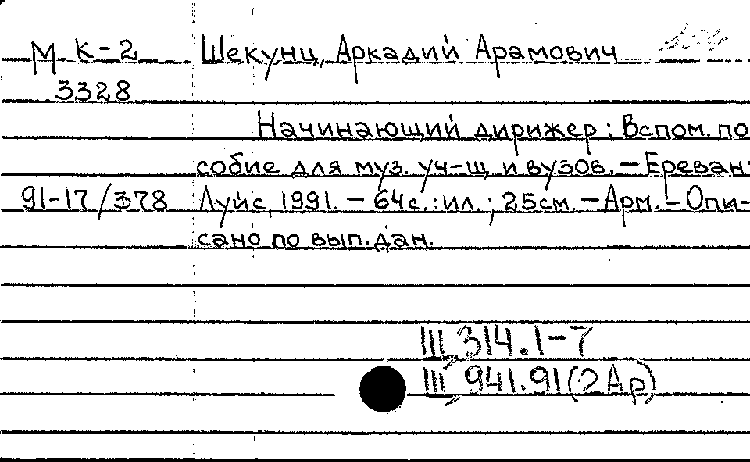 М К-2 Шекунц, Аркадий Арамович
3328
Начинающий дирижер : Вспом. по
собие для муз. уч-щ и вузов. – Ереван:
91-17/378 Луйс, 1991. – 64с.:ил.; 25см. – Арм. – Опи-
сано по вып. дан.
Щ 314.1-7
Щ 941.91(2Ар)